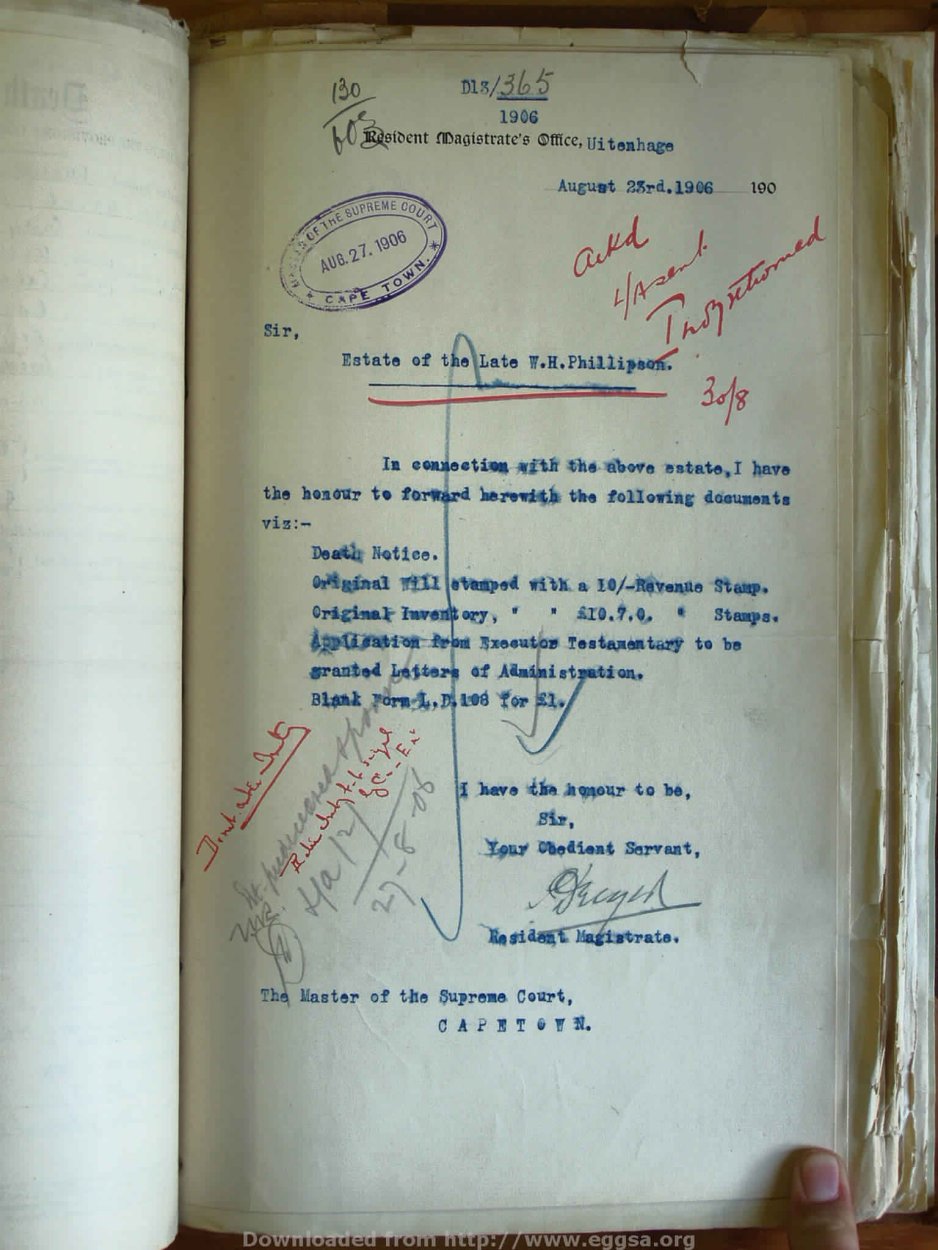 130
D13/365
1906
Resident Magistrate's Office, Uitenhage
August 23rd.1906 190
MASTER OF THE SUPREME COURT
AUG.27.1906
CAPE TOWN.
Ackd
L/A sent.
Sir,
Estate of the Late W.H.Phillipson.
30/8
In connection with the above estate,I have
the honour to forward herewith the following documents
viz:-
Death Notice.
Original Will stamped with a 10/-Revenue Stamp.
Original Inventory, " " £10.7.0. " Stamps.
Application from Executor Testamentary to be
granted Letters of Administration.
Blank Form L.D.108 for £1.
27-8-06
I have the honour to be,
Sir,
Your Obedient Servant,
Resident Magistrate.
The Master of the Supreme Court,
CAPETOWN.
Downloaded from http://www.eggsa.org